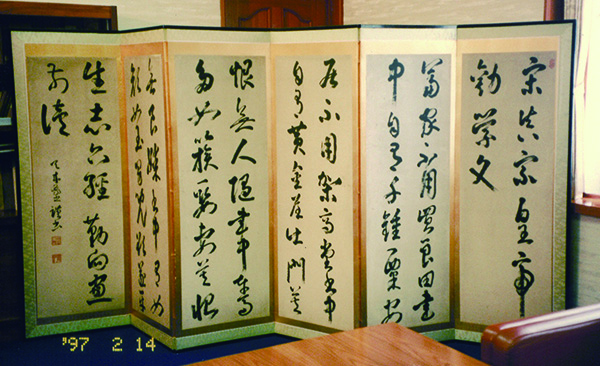 宋真宗皇帝
勸學文
富家不用買良田書
中自有千鍾粟安
居不用架高堂書中
自有黃金屋出門莫
恨無人隨書中車馬
多如簇娶妻莫恨
無良媒書中有女
顏如玉男兒欲遂平
生志六經勤向窗
前讀
'97 2 14